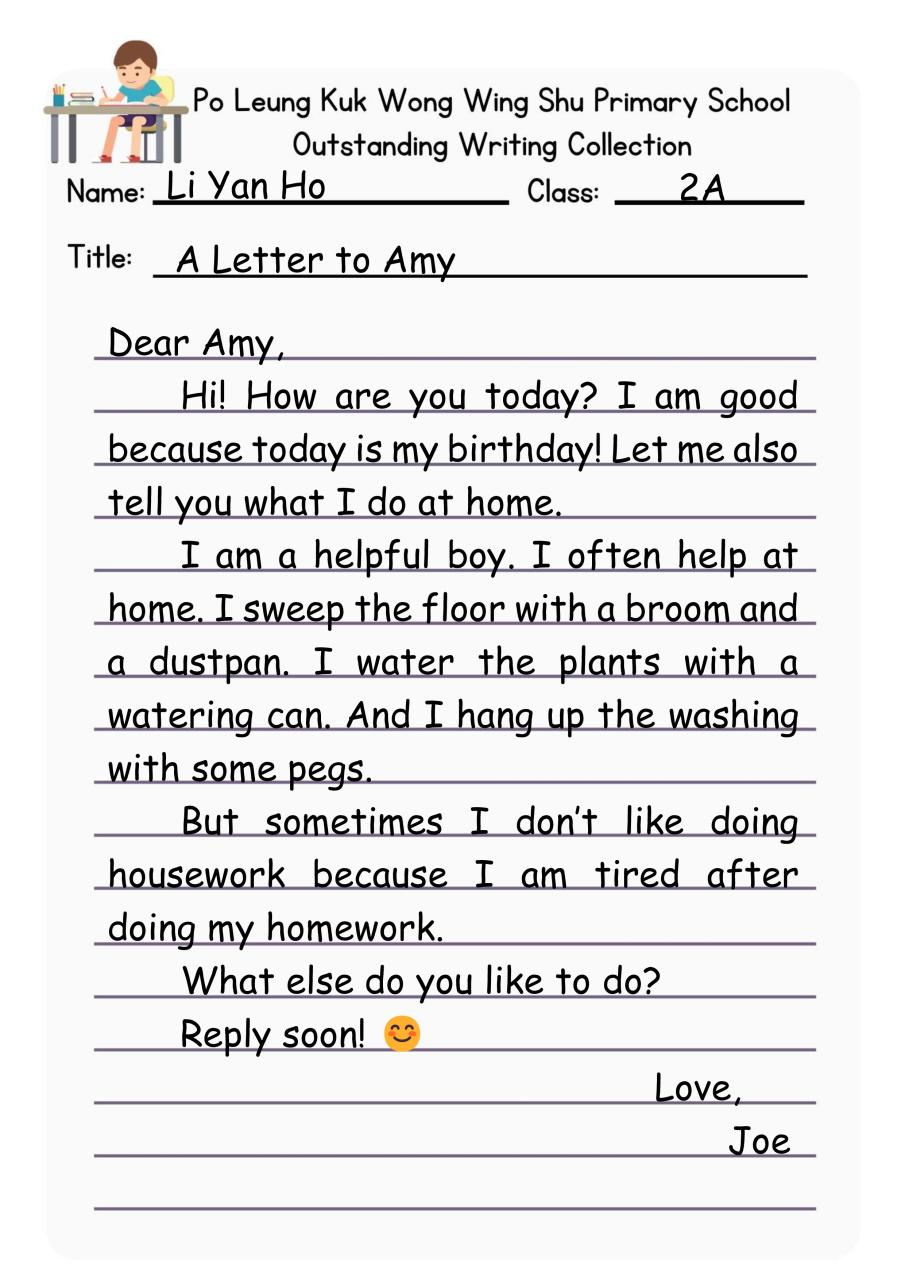 Po Leung Kuk Wong Wing Shu Primary School
Outstanding Writing Collection
Name: Li Yan Ho Class: 2A
Title: A Letter to Amy
Dear Amy,
Hi! How are you today? I am good
because today is my birthday! Let me also
tell you what I do at home.
I am a helpful boy. I often help at
home. I sweep the floor with a broom and
a dustpan. I water the plants with a
watering can. And I hang up the washing
with some pegs.
But sometimes I don't like doing
housework because I am tired after
doing my homework.
What else do you like to do?
Reply soon! 😊
Love,
Joe